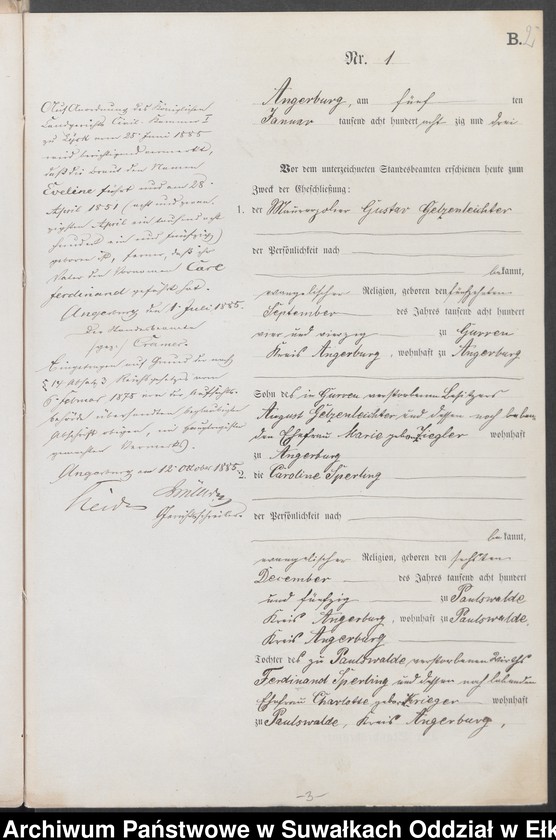 B.
Nr. 1
Auf Anordnung des Königlichen
Landgerichts Civil-Kammer I
zu Lyck vom 25. Juni 1885
wird berichtigend vermerkt,
daß die Braut den Namen
Eveline führt und am 28.
April 1851 (acht und zwan-
zigsten April ein tausend acht
hundert ein und fünfzig)
geboren ist, ferner, daß ihr
Vater die Vornamen Carl
Ferdinand geführt hat.
Angerburg den 1. Juli 1885.
Der Standesbeamte
(gez.) Cramer.
Eingetragen auf Grund der nach
§ 14 Absatz 3 Reichsgesetzes vom
6 Februar 1875 von der Aufsichts-
behörde übersandten beglaubigten
Abschrift obigen, im Hauptregister
gemachten Vermerks.
Angerburg am 12. October 1885.
Gerichtsschreiber.
Angerburg, am fünf ten
Januar tausend acht hundert acht zig und drei
Vor dem unterzeichneten Standesbeamten erschienen heute zum
Zweck der Eheschließung:
1. der Maurerpolier Gustav Getzenleichter
der Persönlichkeit nach
bekannt,
evangelischer Religion, geboren den fünfzehnten
September des Jahres tausend acht hundert
vier und vierzig zu Gurren
Kreis Angerburg, wohnhaft zu Angerburg
Sohn des in Gurren verstorbenen Besitzers
August Getzenleichter und dessen noch leben
den Ehefrau Maria geb. Ziegler wohnhaft
zu Angerburg
2. die Caroline Sperling
der Persönlichkeit nach
bekannt,
evangelischer Religion, geboren den sechsten
December des Jahres tausend acht hundert
und fünfzig zu Paulswalde
Kreis Angerburg, wohnhaft zu Paulswalde,
Kreis Angerburg
Tochter des zu Paulswalde verstorbenen Wirths
Ferdinand Sperling und dessen noch lebenden
Ehefrau Charlotte geb. Krieger wohnhaft
zu Paulswalde, Kreis Angerburg,
-3-
Archiwum Państwowe w Suwałkach Oddział w Ełk